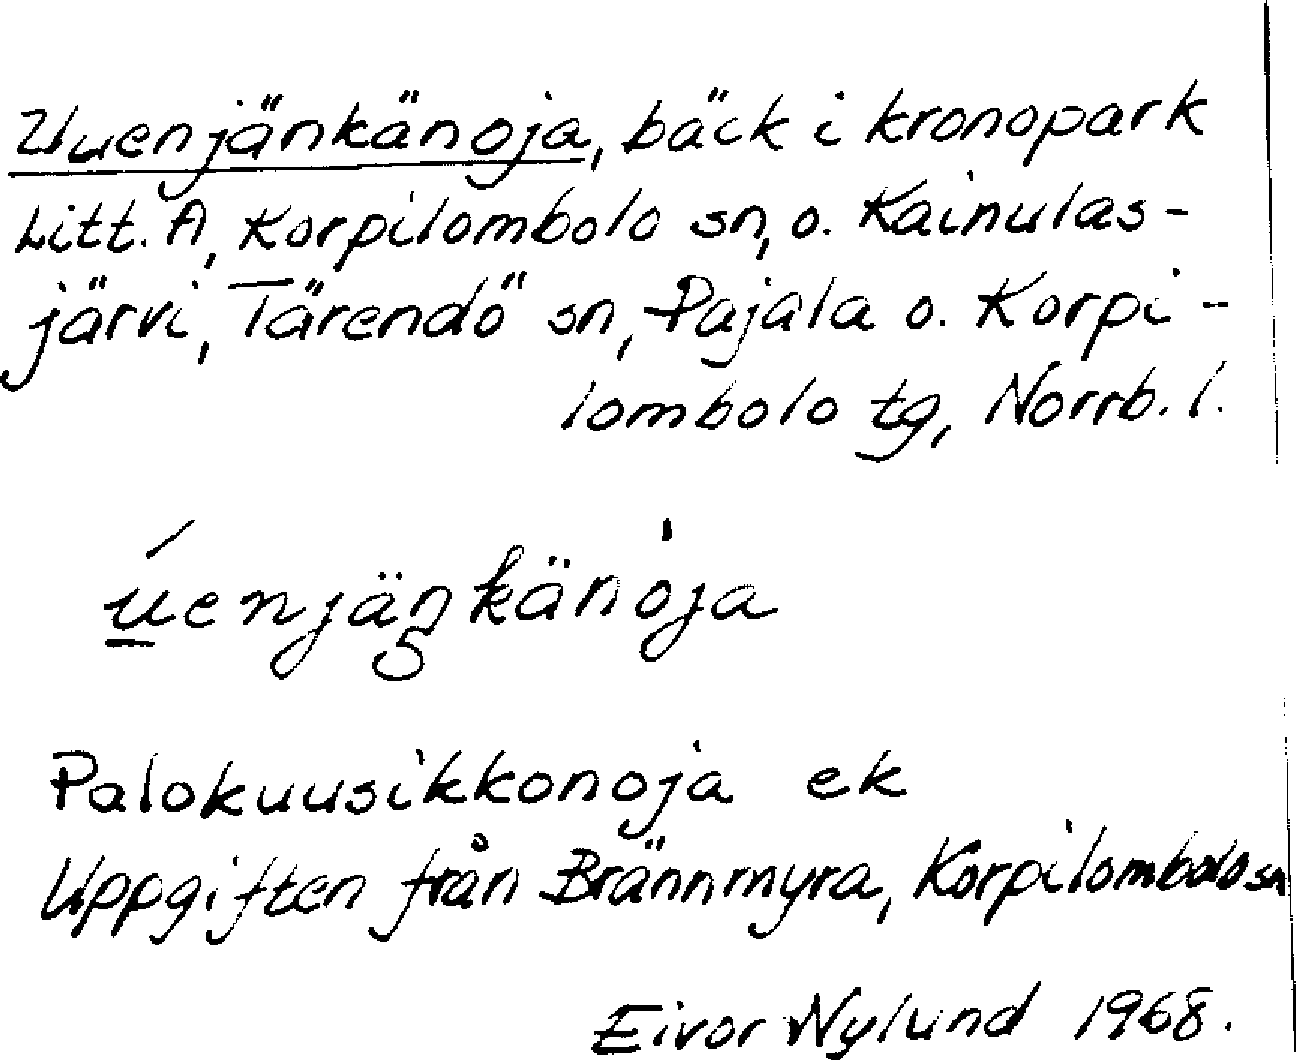 Uuenjänkänoja, bäck i kronopark
Litt. A, Korpilombolo sn, o. Kainulas-
järvi, Tärendö sn, Pajala o. Korpi-
lombolo tg, Norrb. l.
úenjäŋkänòja
Palokuusikkonoja ek
Uppgiften från Brännmyra, Korpilombolo sn
Eivor Nylund 1968.